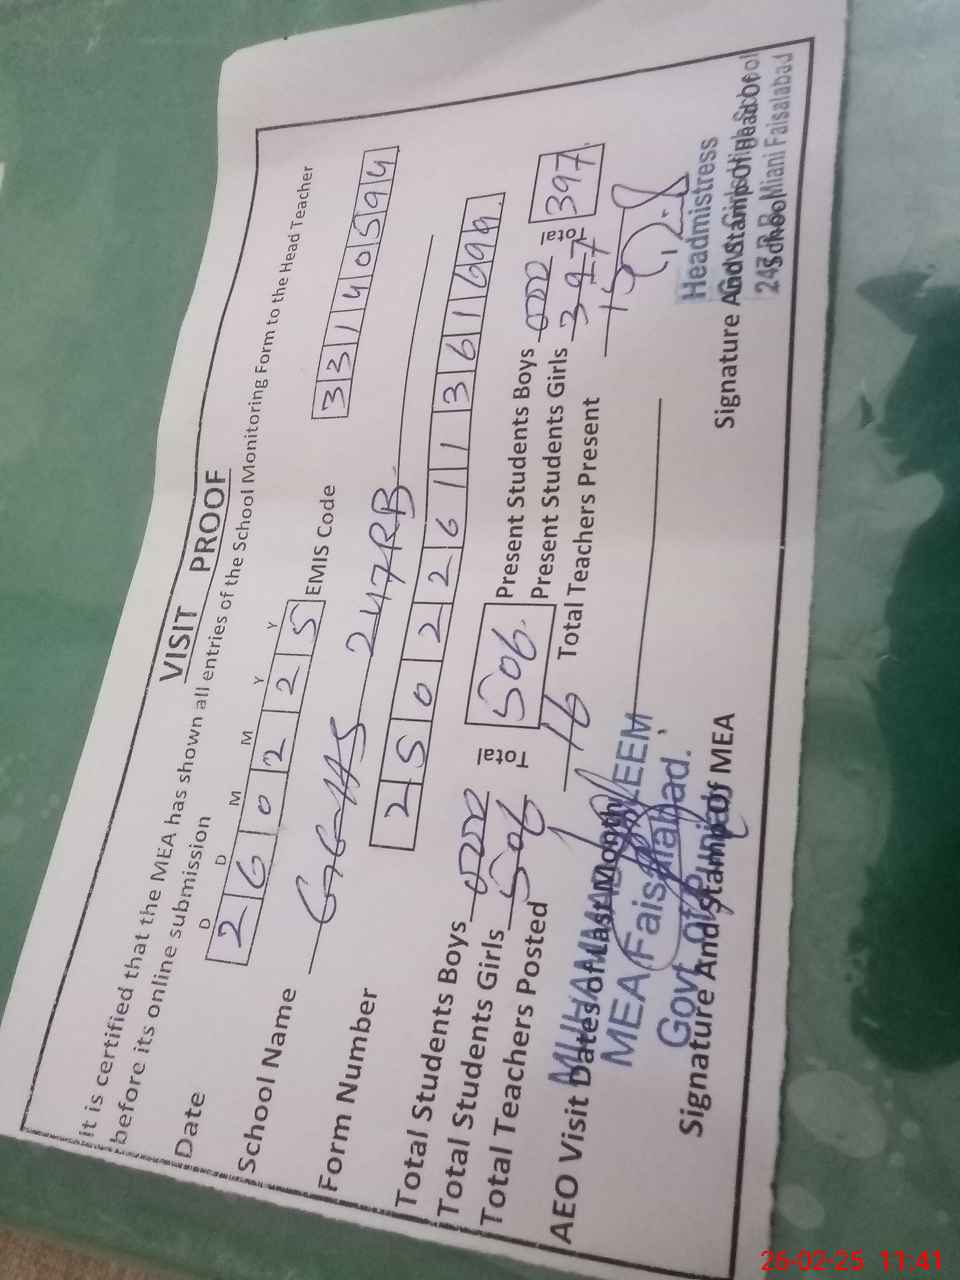 VISIT PROOF
It is certified that the MEA has shown all entries of the School Monitoring Form to the Head Teacher
before its online submission
D D M M Y Y
Date 2 6 0 2 2 5 EMIS Code 3 3 1 4 0 5 9 4
School Name GGHS 247RB
Form Number 2 5 0 2 2 6 1 1 3 6 1 9 9 9
Total Students Boys 000 Total 506 Present Students Boys 000 Total 397
Total Students Girls 506 Present Students Girls 397
Total Teachers Posted 16 Total Teachers Present 15
AEO Visit Dates of Last Month
MUHAMMAD
MEA Faisalabad.
Govt of Punjab
Signature And Stamp Of MEA
Headmistress
Signature And Stamp Of Head Of
School
247 R.B. Miani Faisalabad
26-02-25 11:41